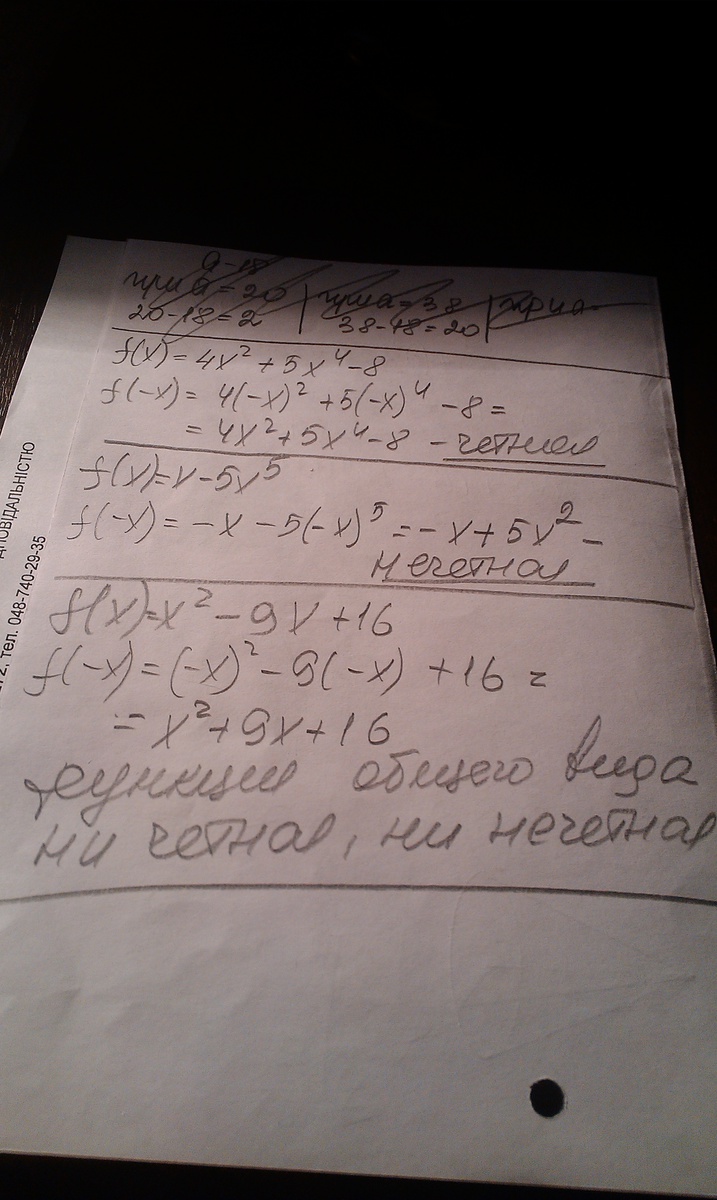 а-18
при а=20 | при а=38 | при а-
20-18=2 | 38-18=20
f(x)=4x²+5x⁴-8
f(-x)=4(-x)²+5(-x)⁴-8=
=4x²+5x⁴-8 - четная
f(x)=x-5x⁵
f(-x)=-x-5(-x)⁵=-x+5x²-
нечетная
f(x)=x²-9x+16
f(-x)=(-x)²-9(-x)+16=
=x²+9x+16
функция общего вида
ни четная, ни нечетная
ДПОВІДАЛЬНІСТЮ
72, тел. 048-740-29-35